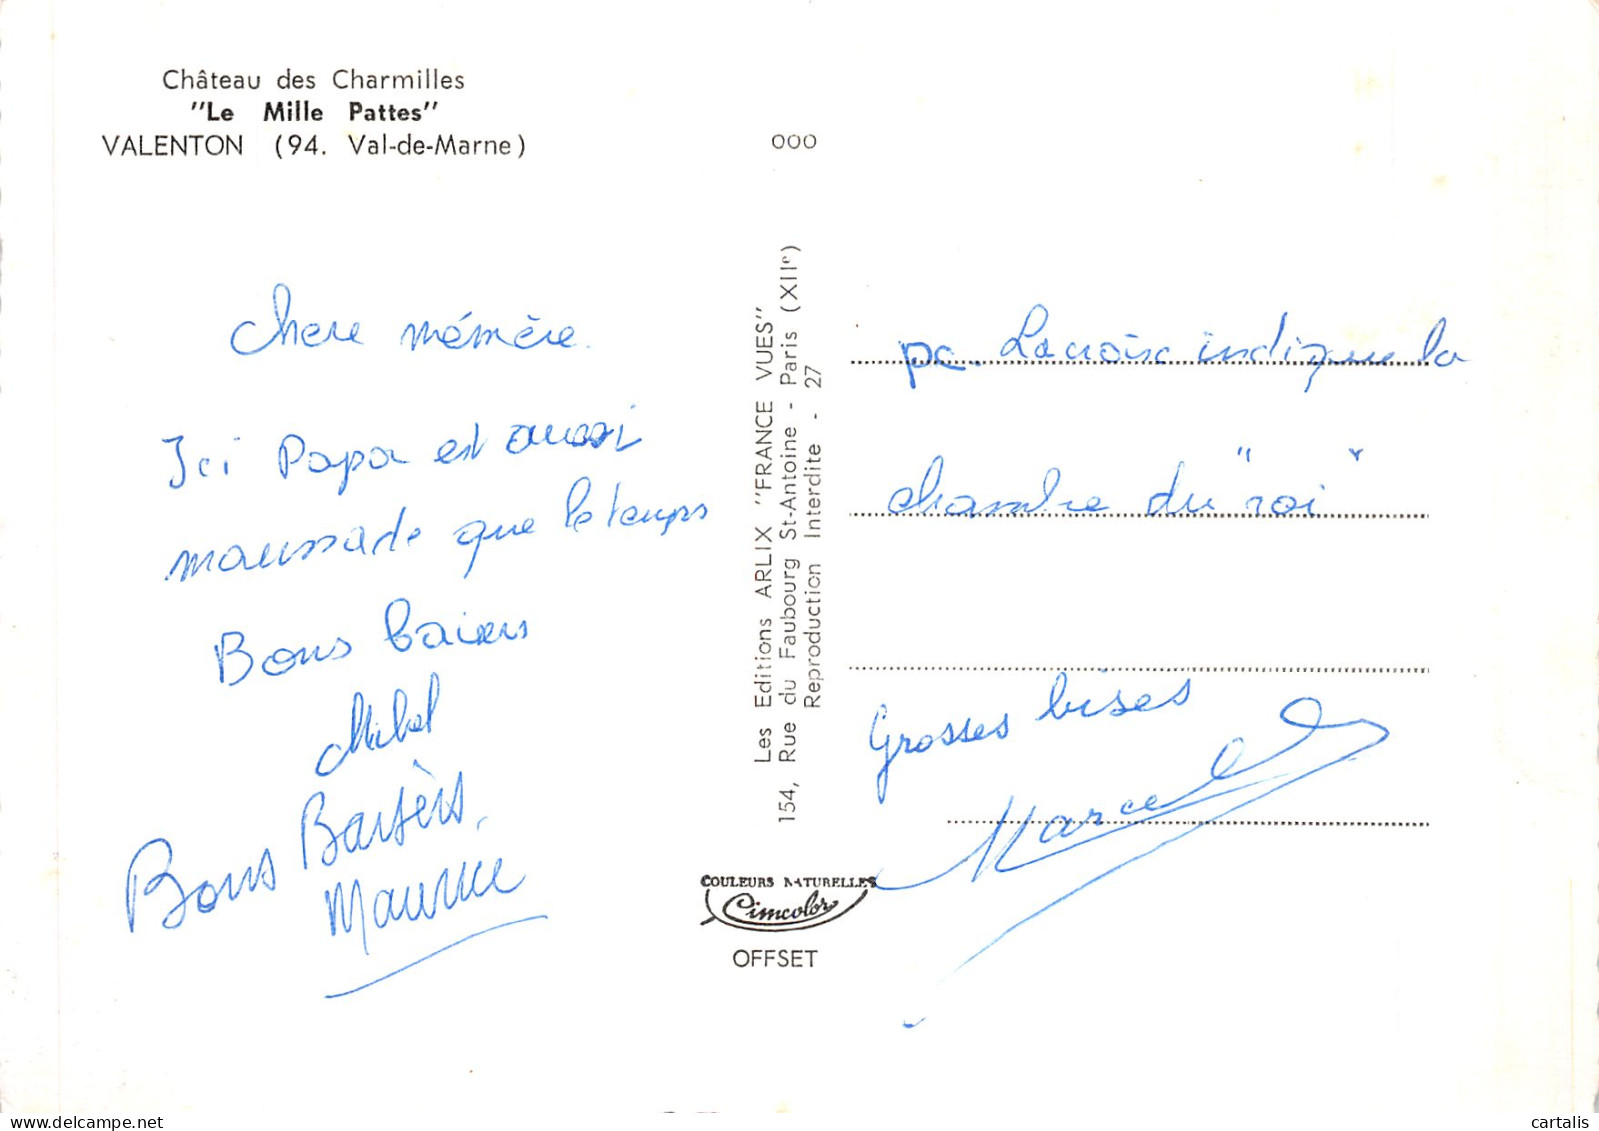 Château des Charmilles
"Le Mille Pattes"
VALENTON (94. Val-de-Marne)
000
Chere mémère.
Ici Papa est aussi
maussade que le temps
Bons baisers
Michel
Bons Baisers.
Maurice
Les Editions ARLIX "FRANCE VUES"
154, Rue du Faubourg St-Antoine - Paris (XIIe)
Reproduction Interdite - 27
COULEURS NATURELLES
Cimcolor
OFFSET
pc. La croix indique la
chambre du "roi"
Grosses bises
Marcel
cartalis